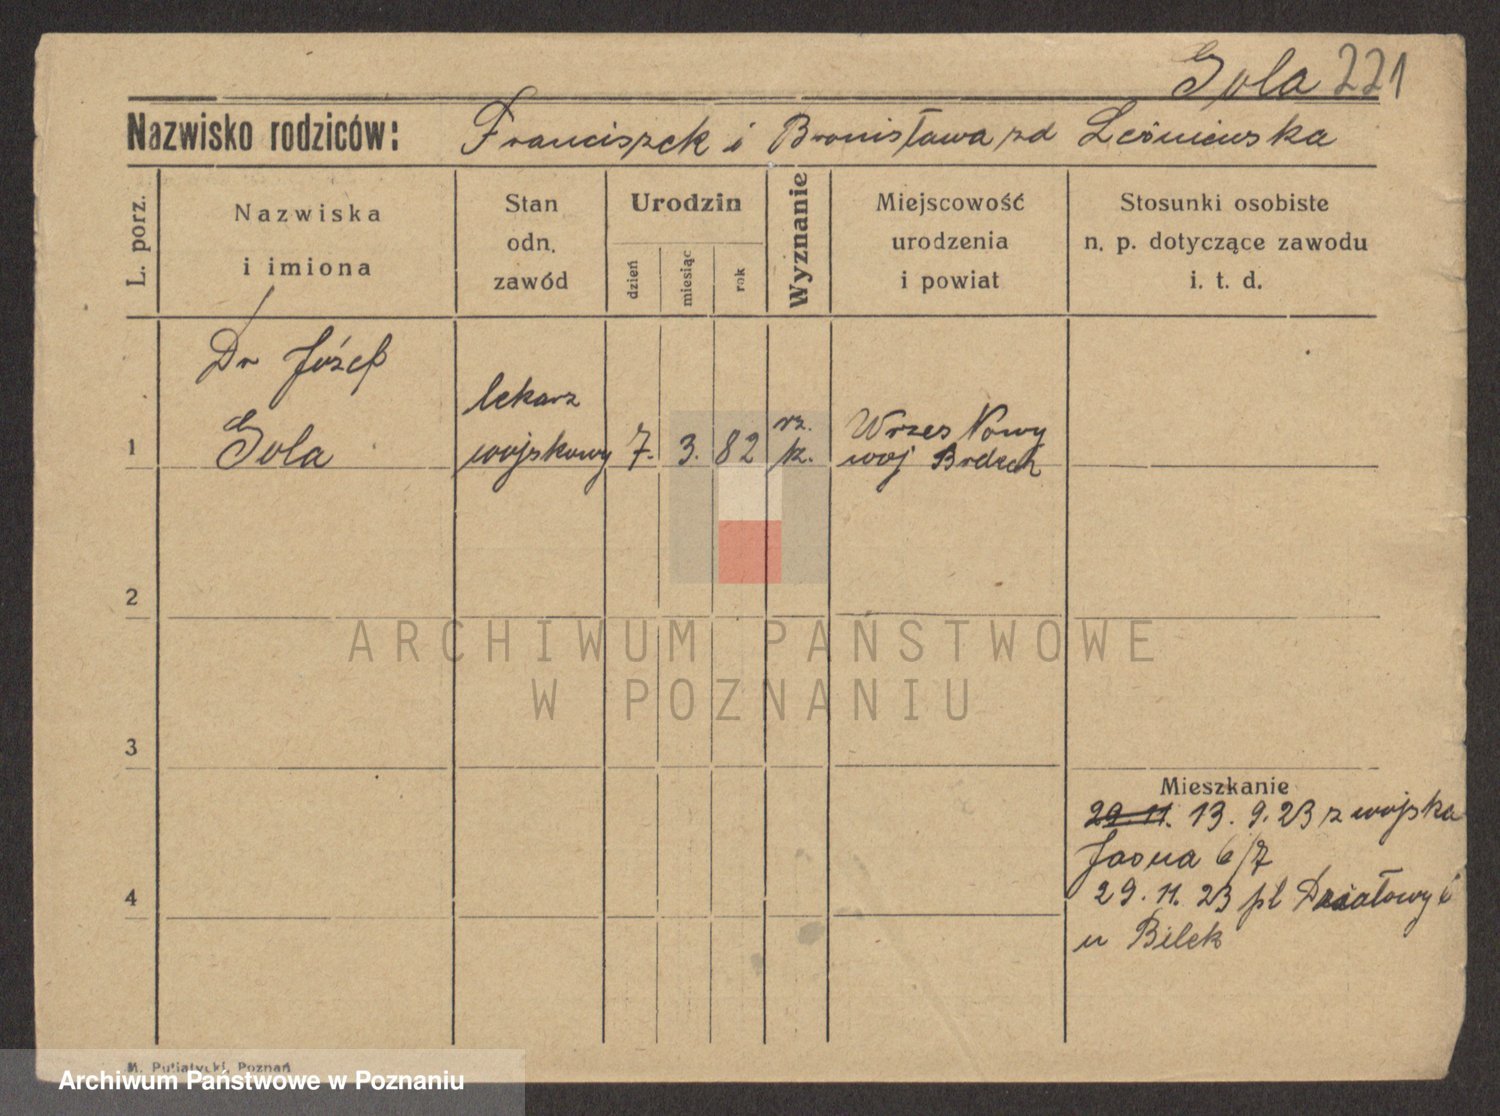 Gola 221
Nazwisko rodziców: Franciszek i Bronisława zd Leśniewska
L. porz.
Nazwiska
i imiona
Stan
odn.
zawód
Urodzin
dzień
miesiąc
rok
Wyznanie
Miejscowość
urodzenia
i powiat
Stosunki osobiste
n. p. dotyczące zawodu
i. t. d.
1
Dr Józef
Gola
lekarz
wojskowy
7. 3. 82
rz.
k.
Nowy
woj
2
3
4
Mieszkanie
29.11. 13. 9. 23 z wojska
Jasna 6/7
29. 11. 23 pl Działowy 6
u Bilek
M. Putiatycki, Poznań
ARCHIWUM PAŃSTWOWE
W POZNANIU
Archiwum Państwowe w Poznaniu